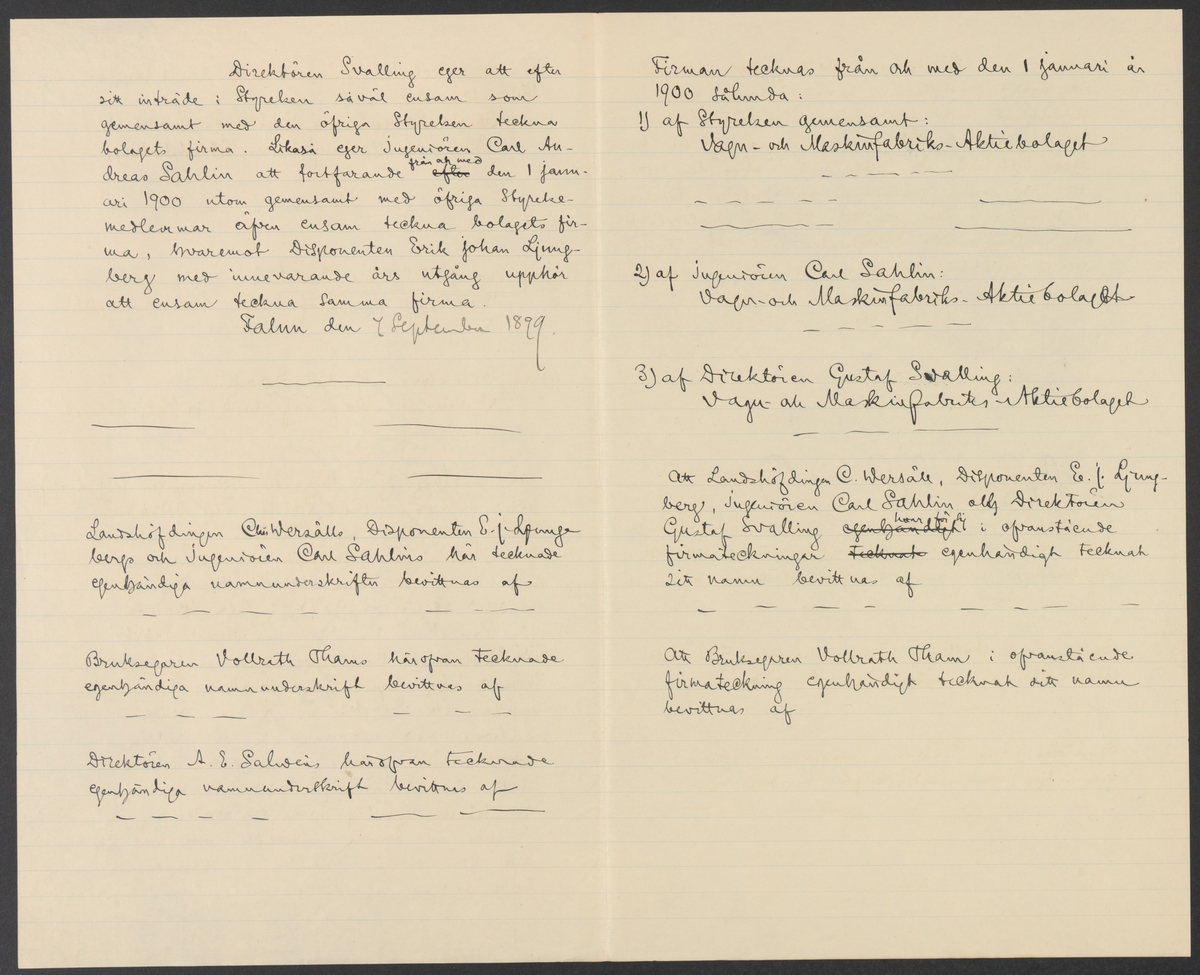 Direktören Svalling eger att efter
sitt inträde i Styrelsen såväl ensam som
gemensamt med den öfriga Styrelsen teckna
bolagets firma. Likaså eger ingeniören Carl An-
dreas Sahlin att fortfarande från och med efter den 1 janu-
ari 1900 utom gemensamt med öfriga Styrelse-
medlemmar äfven ensam teckna bolagets fir-
ma, hvaremot Disponenten Erik Johan Ljung-
berg med innevarande års utgång upphör
att ensam teckna samma firma.
Falun den 7 September 1899.
Landshöfdingen C. Wersälls, Disponenten E. J. Ljung-
bergs och ingeniören Carl Sahlins här tecknade
egenhändiga namnunderskrifter bevittnas af
Bruksegaren Vollrath Thams härofvan tecknade
egenhändiga namnunderskrift bevittnas af
Direktören A. E. Salwéns härofvan tecknade
egenhändiga namnunderskrift bevittnas af
Firman tecknas från och med den 1 januari år
1900 sålunda:
1) af Styrelsen gemensamt:
Vagn- och Maskinfabriks-Aktiebolaget
2) af ingeniören Carl Sahlin:
Vagn- och Maskinfabriks-Aktiebolaget
3) af Direktören Gustaf Svalling:
Vagn- och Maskinfabriks-Aktiebolaget
Att Landshöfdingen C. Wersäll, Disponenten E. J. Ljung-
berg, ingeniören Carl Sahlin och Direktören
Gustaf Svalling egenhändigt hvar för sig i ofvanstående
firmateckningar tecknat egenhändigt tecknat
sitt namn bevittnas af
Att Bruksegaren Vollrath Tham i ofvanstående
firmateckning egenhändigt tecknat sitt namn
bevittnas af